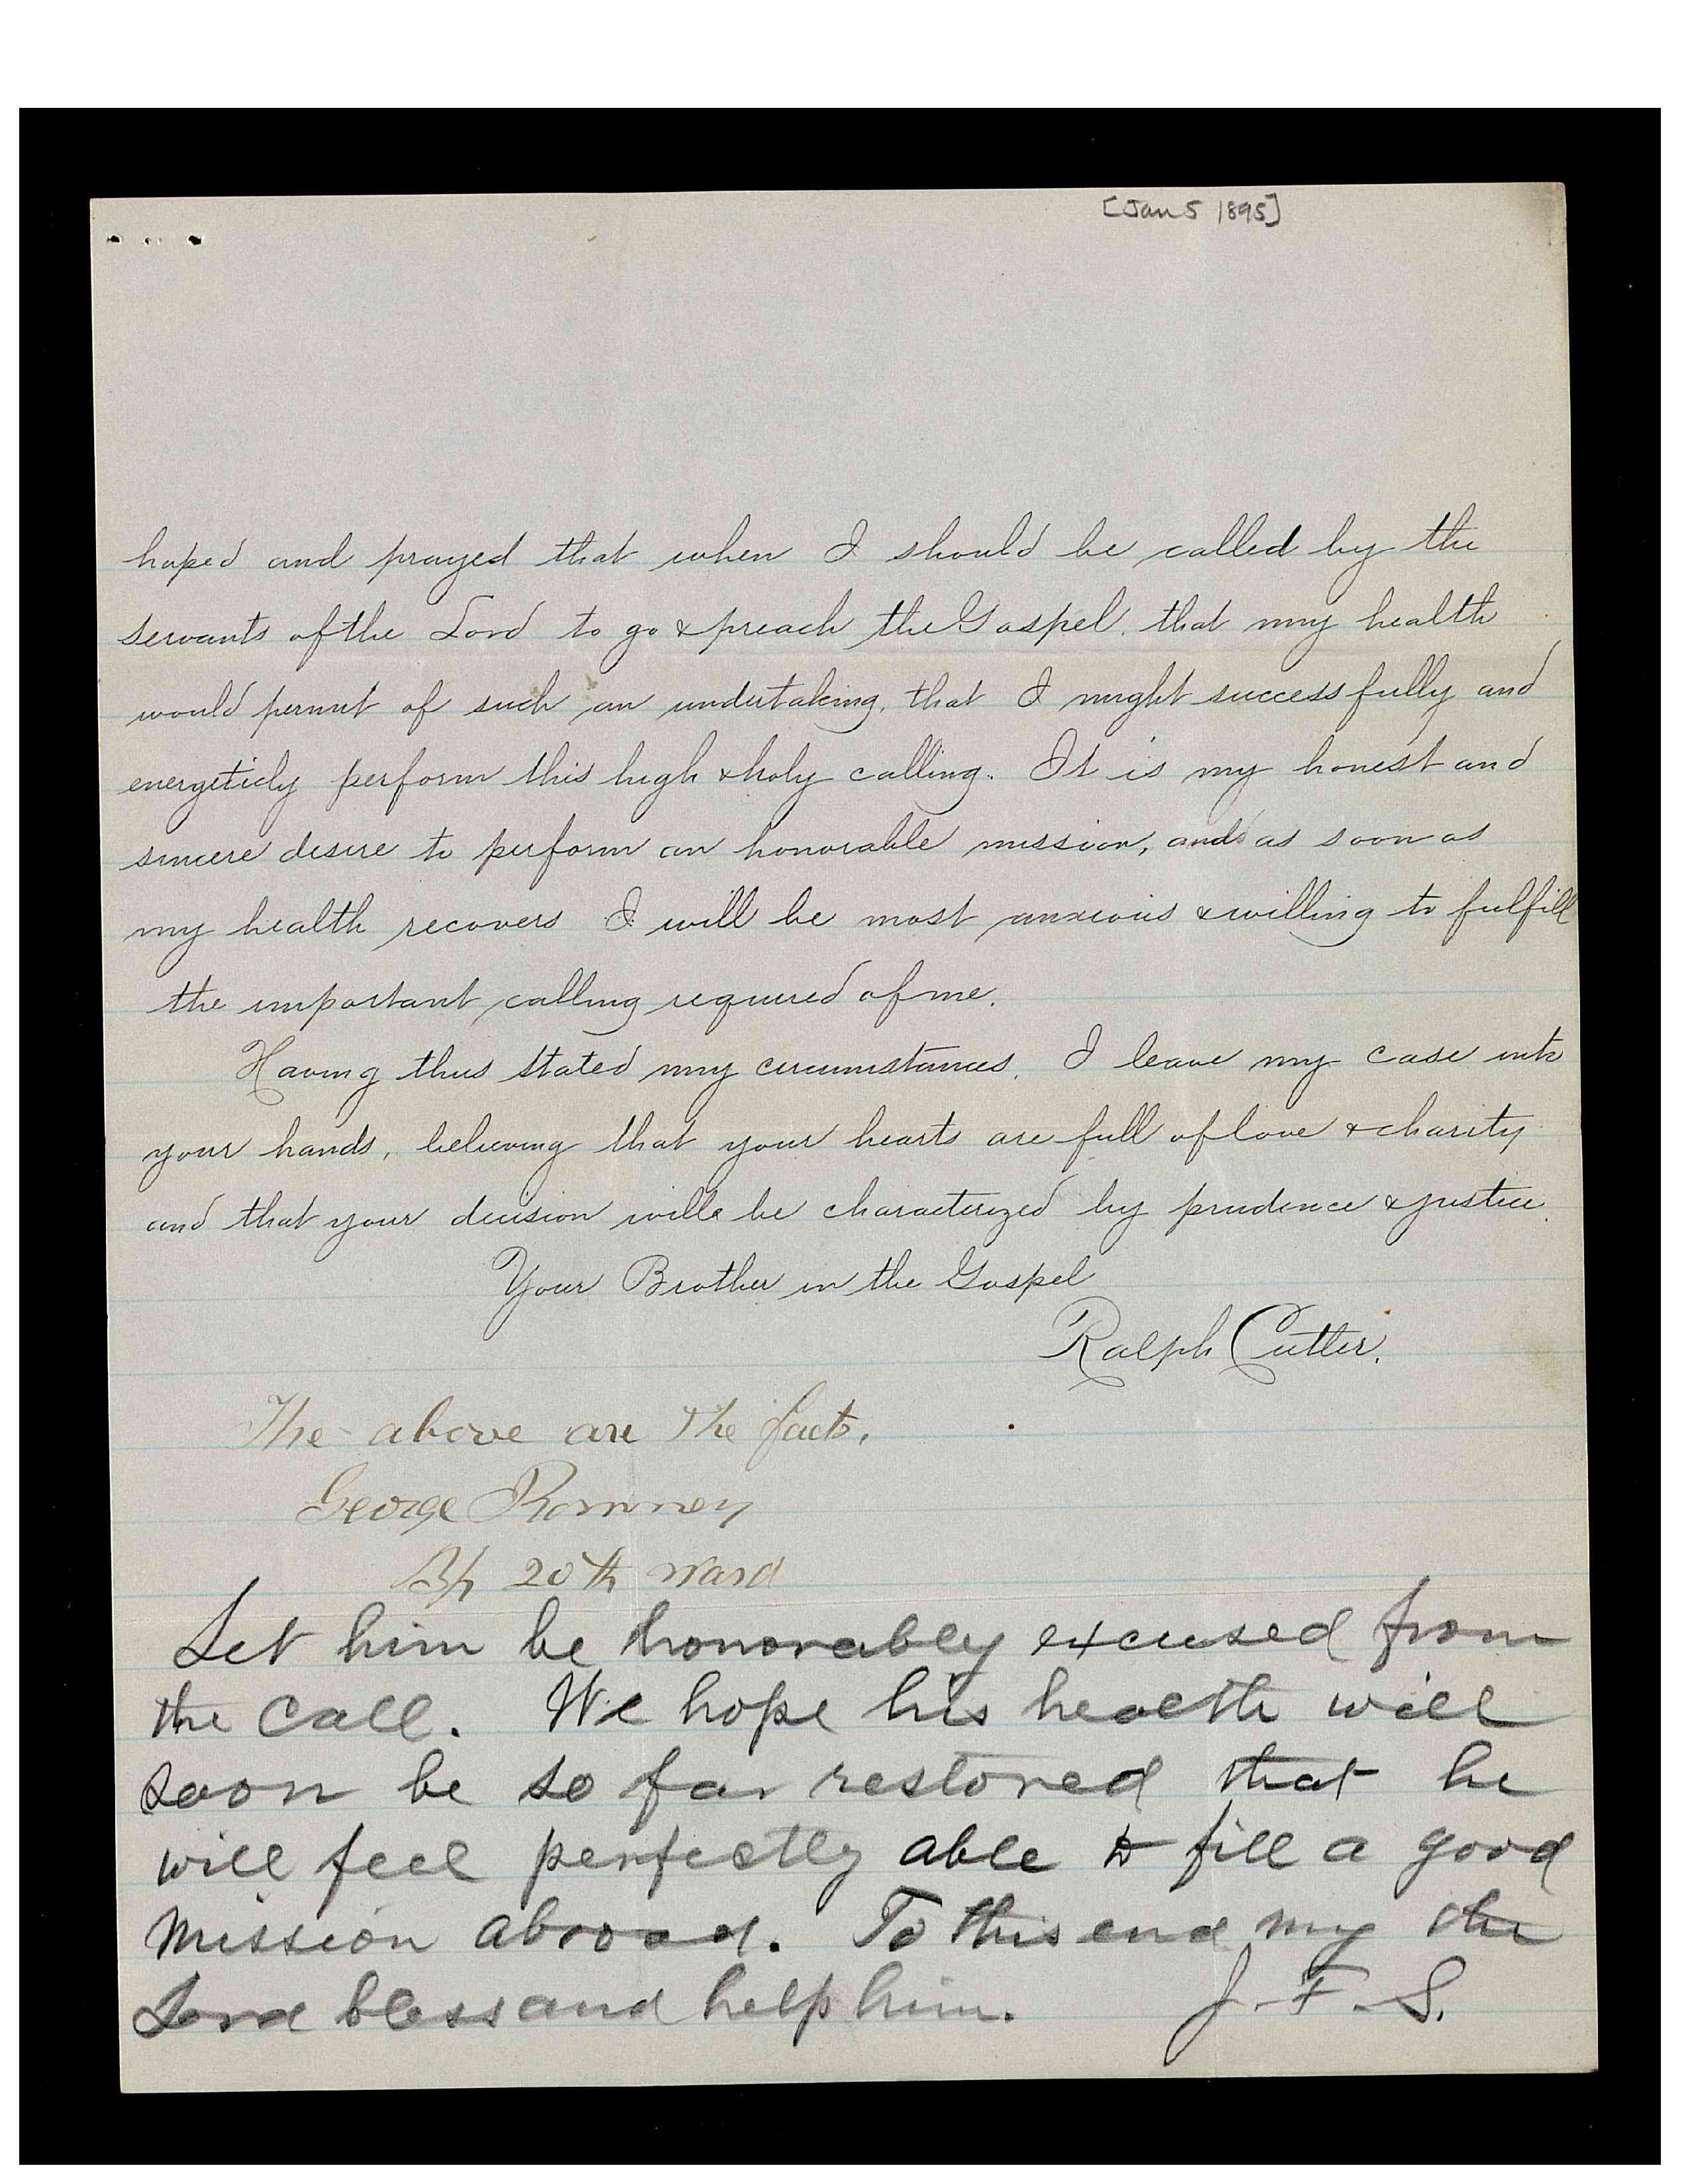 [Jan 5 1895]
hoped and prayed that when I should be called by the
servants of the Lord to go & preach the Gospel, that my health
would permit of such an undertaking, that I might successfully and
energeticly perform this high & holy calling. It is my honest and
sincere desire to perform an honorable mission, and as soon as
my health recovers I will be most anxious & willing to fulfill
the important calling required of me.
Having thus stated my circumstances, I leave my case into
your hands, believing that your hearts are full of love & charity
and that your decision will be characterized by prudence & justice.
Your Brother in the Gospel
Ralph Cutler.
The above are the facts,
George Romney
Bp 20th Ward
Let him be honorably excused from
the call. We hope his health will
soon be so far restored that he
will feel perfectly able to fill a good
mission abroad. To this end my the
Lord bless and help him. J. F. S.